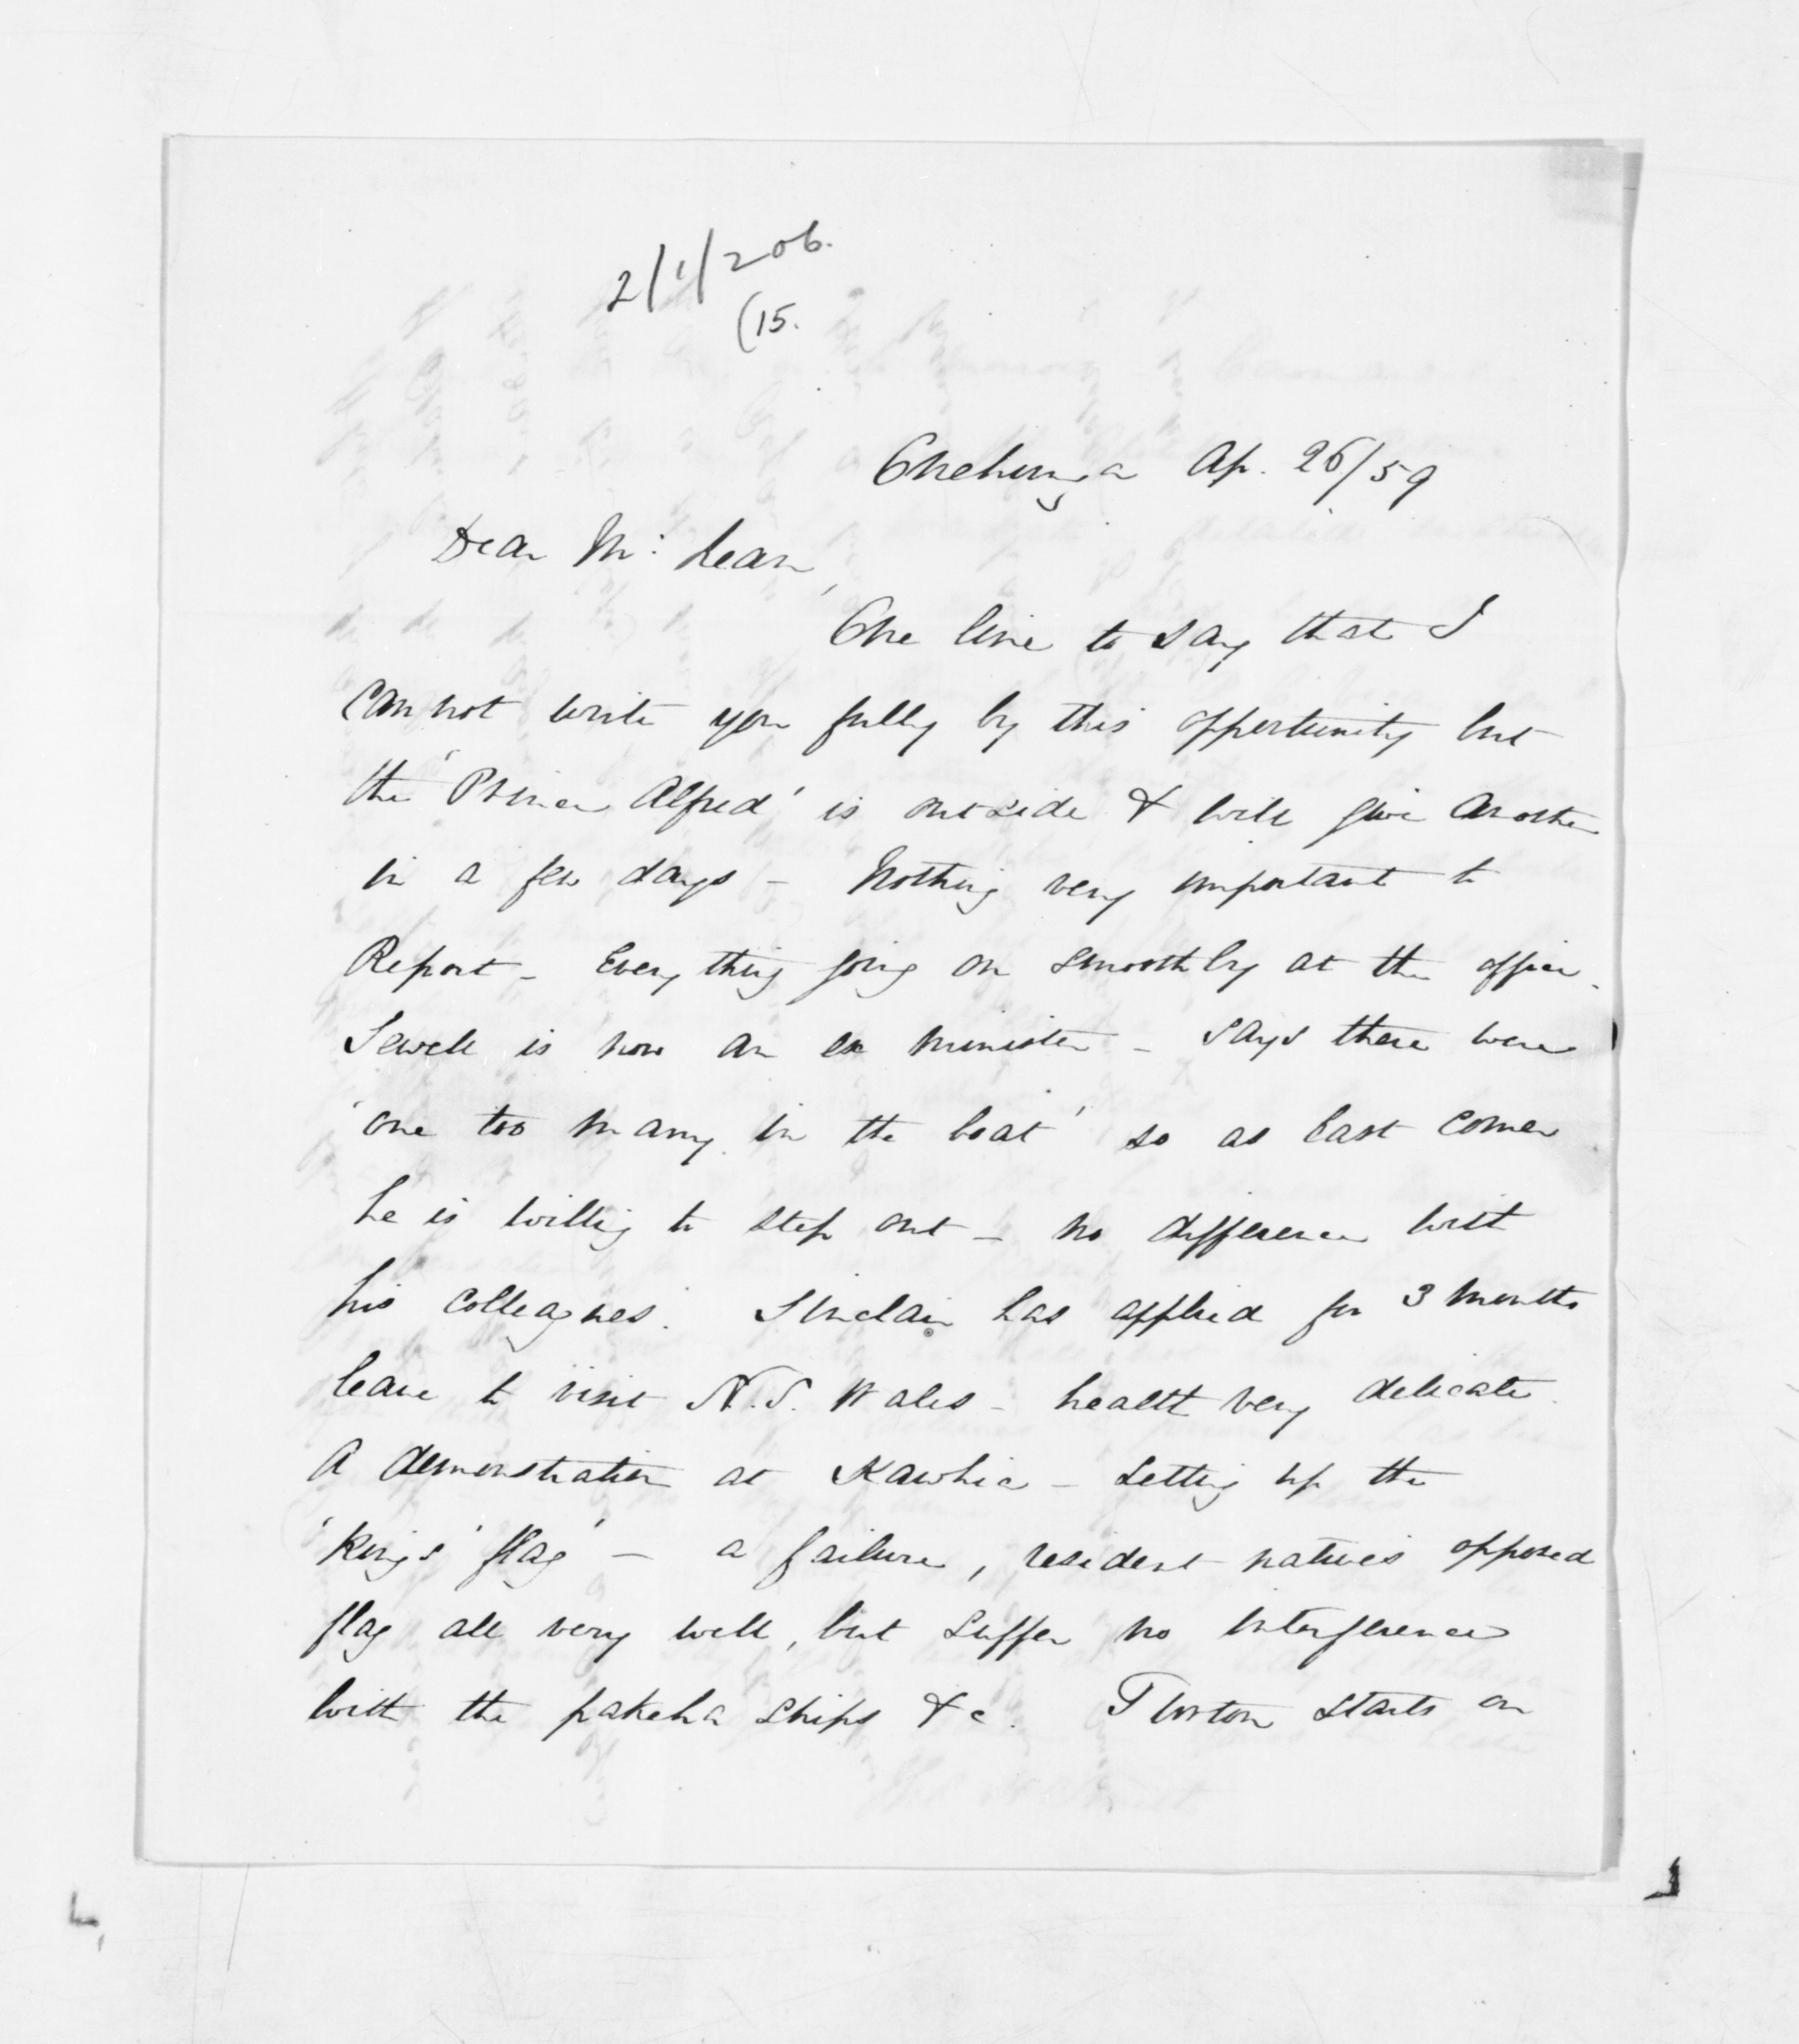 2/1/206.
(15.
Onehunga Ap. 26/59
Dear Mc. Lean,
One line to say that I
cannot write you fully by this opportunity but
the 'Prince Alfred' is outside & will give another
in a few days - Nothing very important to
Report - Every thing going on smoothly at the office.
Sewell is now an ex minister - says there were
'one too many in the boat' so as last comer
he is willing to step out - no difference with
his colleagues. Sinclair has applied for 3 months
leave to visit N.S. Wales - health very delicate.
A demonstration at Kawhia - setting up the
'King's flag' - a failure, resident natives opposed
flag all very well, but suffer no interference
with the pakeha ships &c. Turton starts on